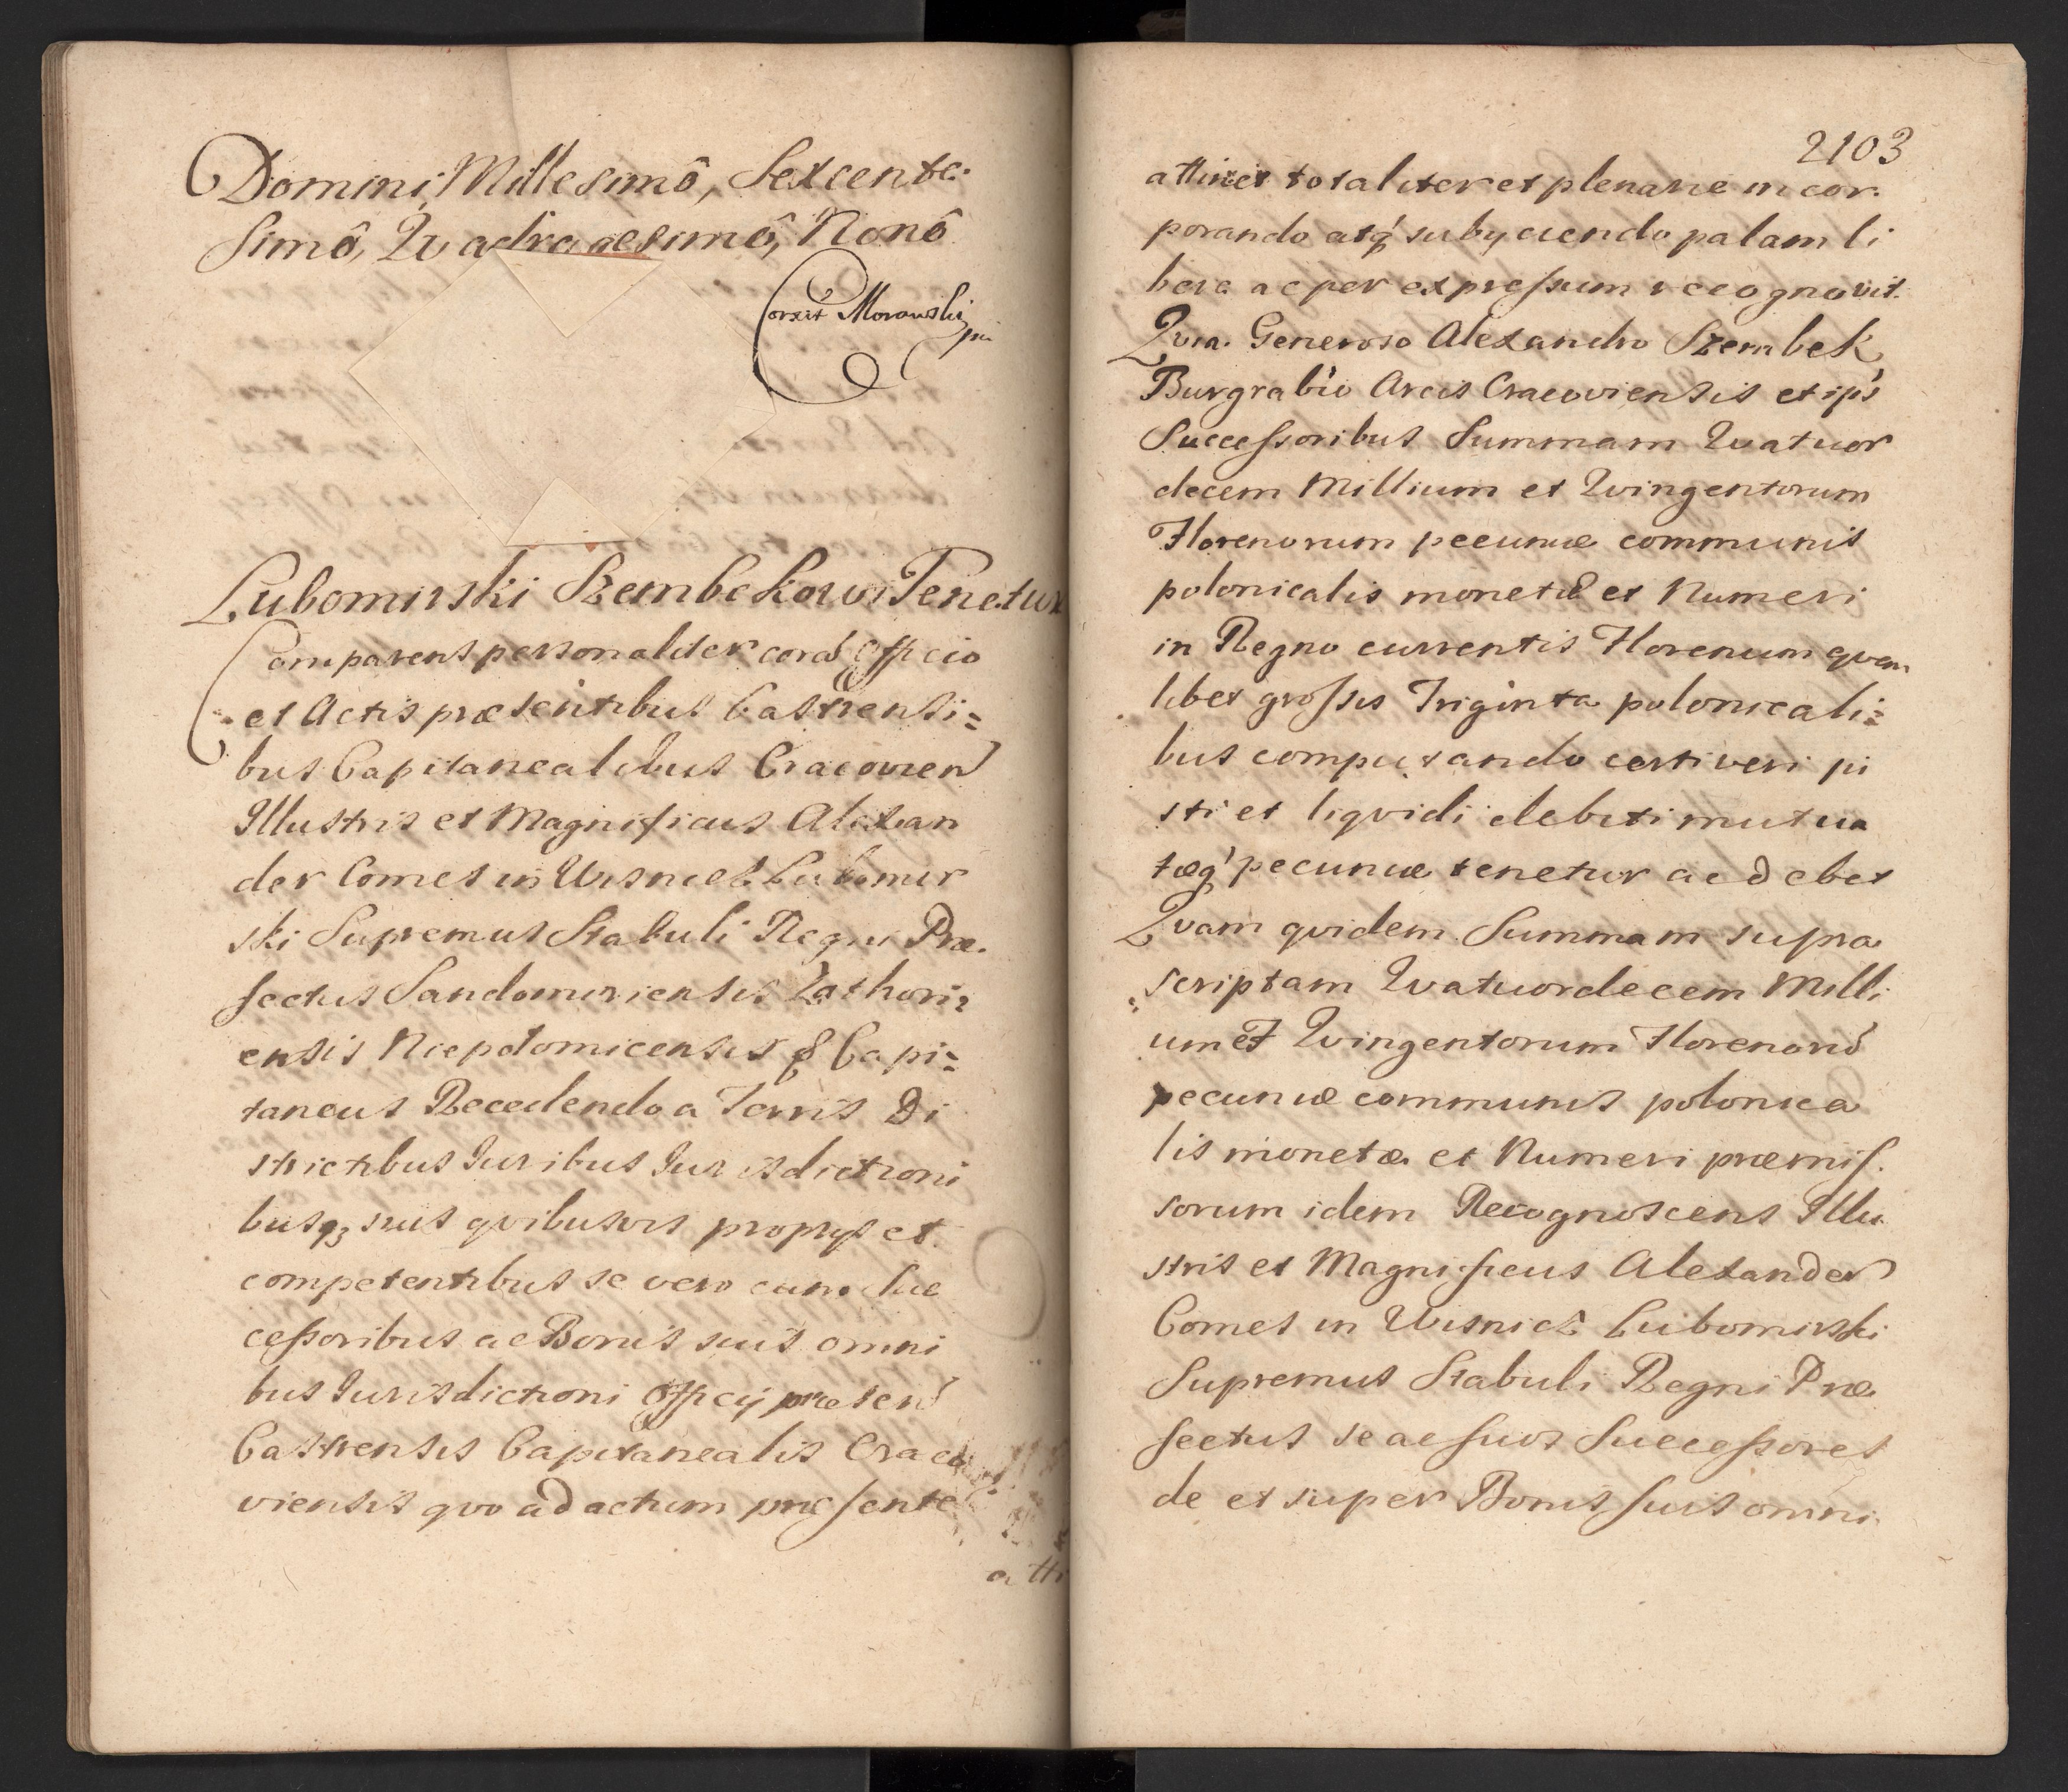 Domini, Millesimô, Sexcente.
simô, Quadragesimô, Nonô
Corxit Morawski
Lubomirski Szembekowi Tenetur
Comparens personaliter corã Officio
et Actis præsentibus Castrensi=
bus Capitanealibus Cracovien
Illustris et Magnificus Alexan
der Comes in Wisnicz Lubomir
ski Supremus Stabuli Regni Præ.
fectus Sandomiriensis Zathori=
ensis Niepolomicensis & Capi=
taneus Recedendo a Terris Di
strictibus Iuribus Iurisdictioni
busq3 suis quibusvis proprijs et
competentibus se vero cum Suc
cessoribus ac Bonis suis omni
bus Iurisdictioni Officij præsen
Castrensis Capitanealis Craco
viensis quo ad actum præsente
atti
2103
attinet totaliter et plenarie incor.
porando atq' subijciendo palam li
bere ac per expressum recognovit.
Quia Generoso Alexandro Szembek
Burgrabio Arcis Cracoviensis et ips'
Successoribus Summam Quatuor
decem Millium et Quingentorum
Florenorum pecuniæ communis
polonicalis monetæ et Numeri
in Regno currentis Florenum quem
libet grossis Triginta polonicali=
bus computando certi veri ju
sti et liquidi debiti mutua
tæq' pecuniæ tenetur ac debet
Quam quidem Summam supra
scriptam Quatuordecem Milli
um et Quingentorum Florenorũ
pecuniæ communis polonica
lis monetæ et Numeri præmis.
sorum idem Recognoscens Illu
stris et Magnificus Alexander
Comes in Wisnicz Lubomirski
Supremus Stabuli Regni Præ
fectus se ac suos Successores
de et super Bonis suis omni